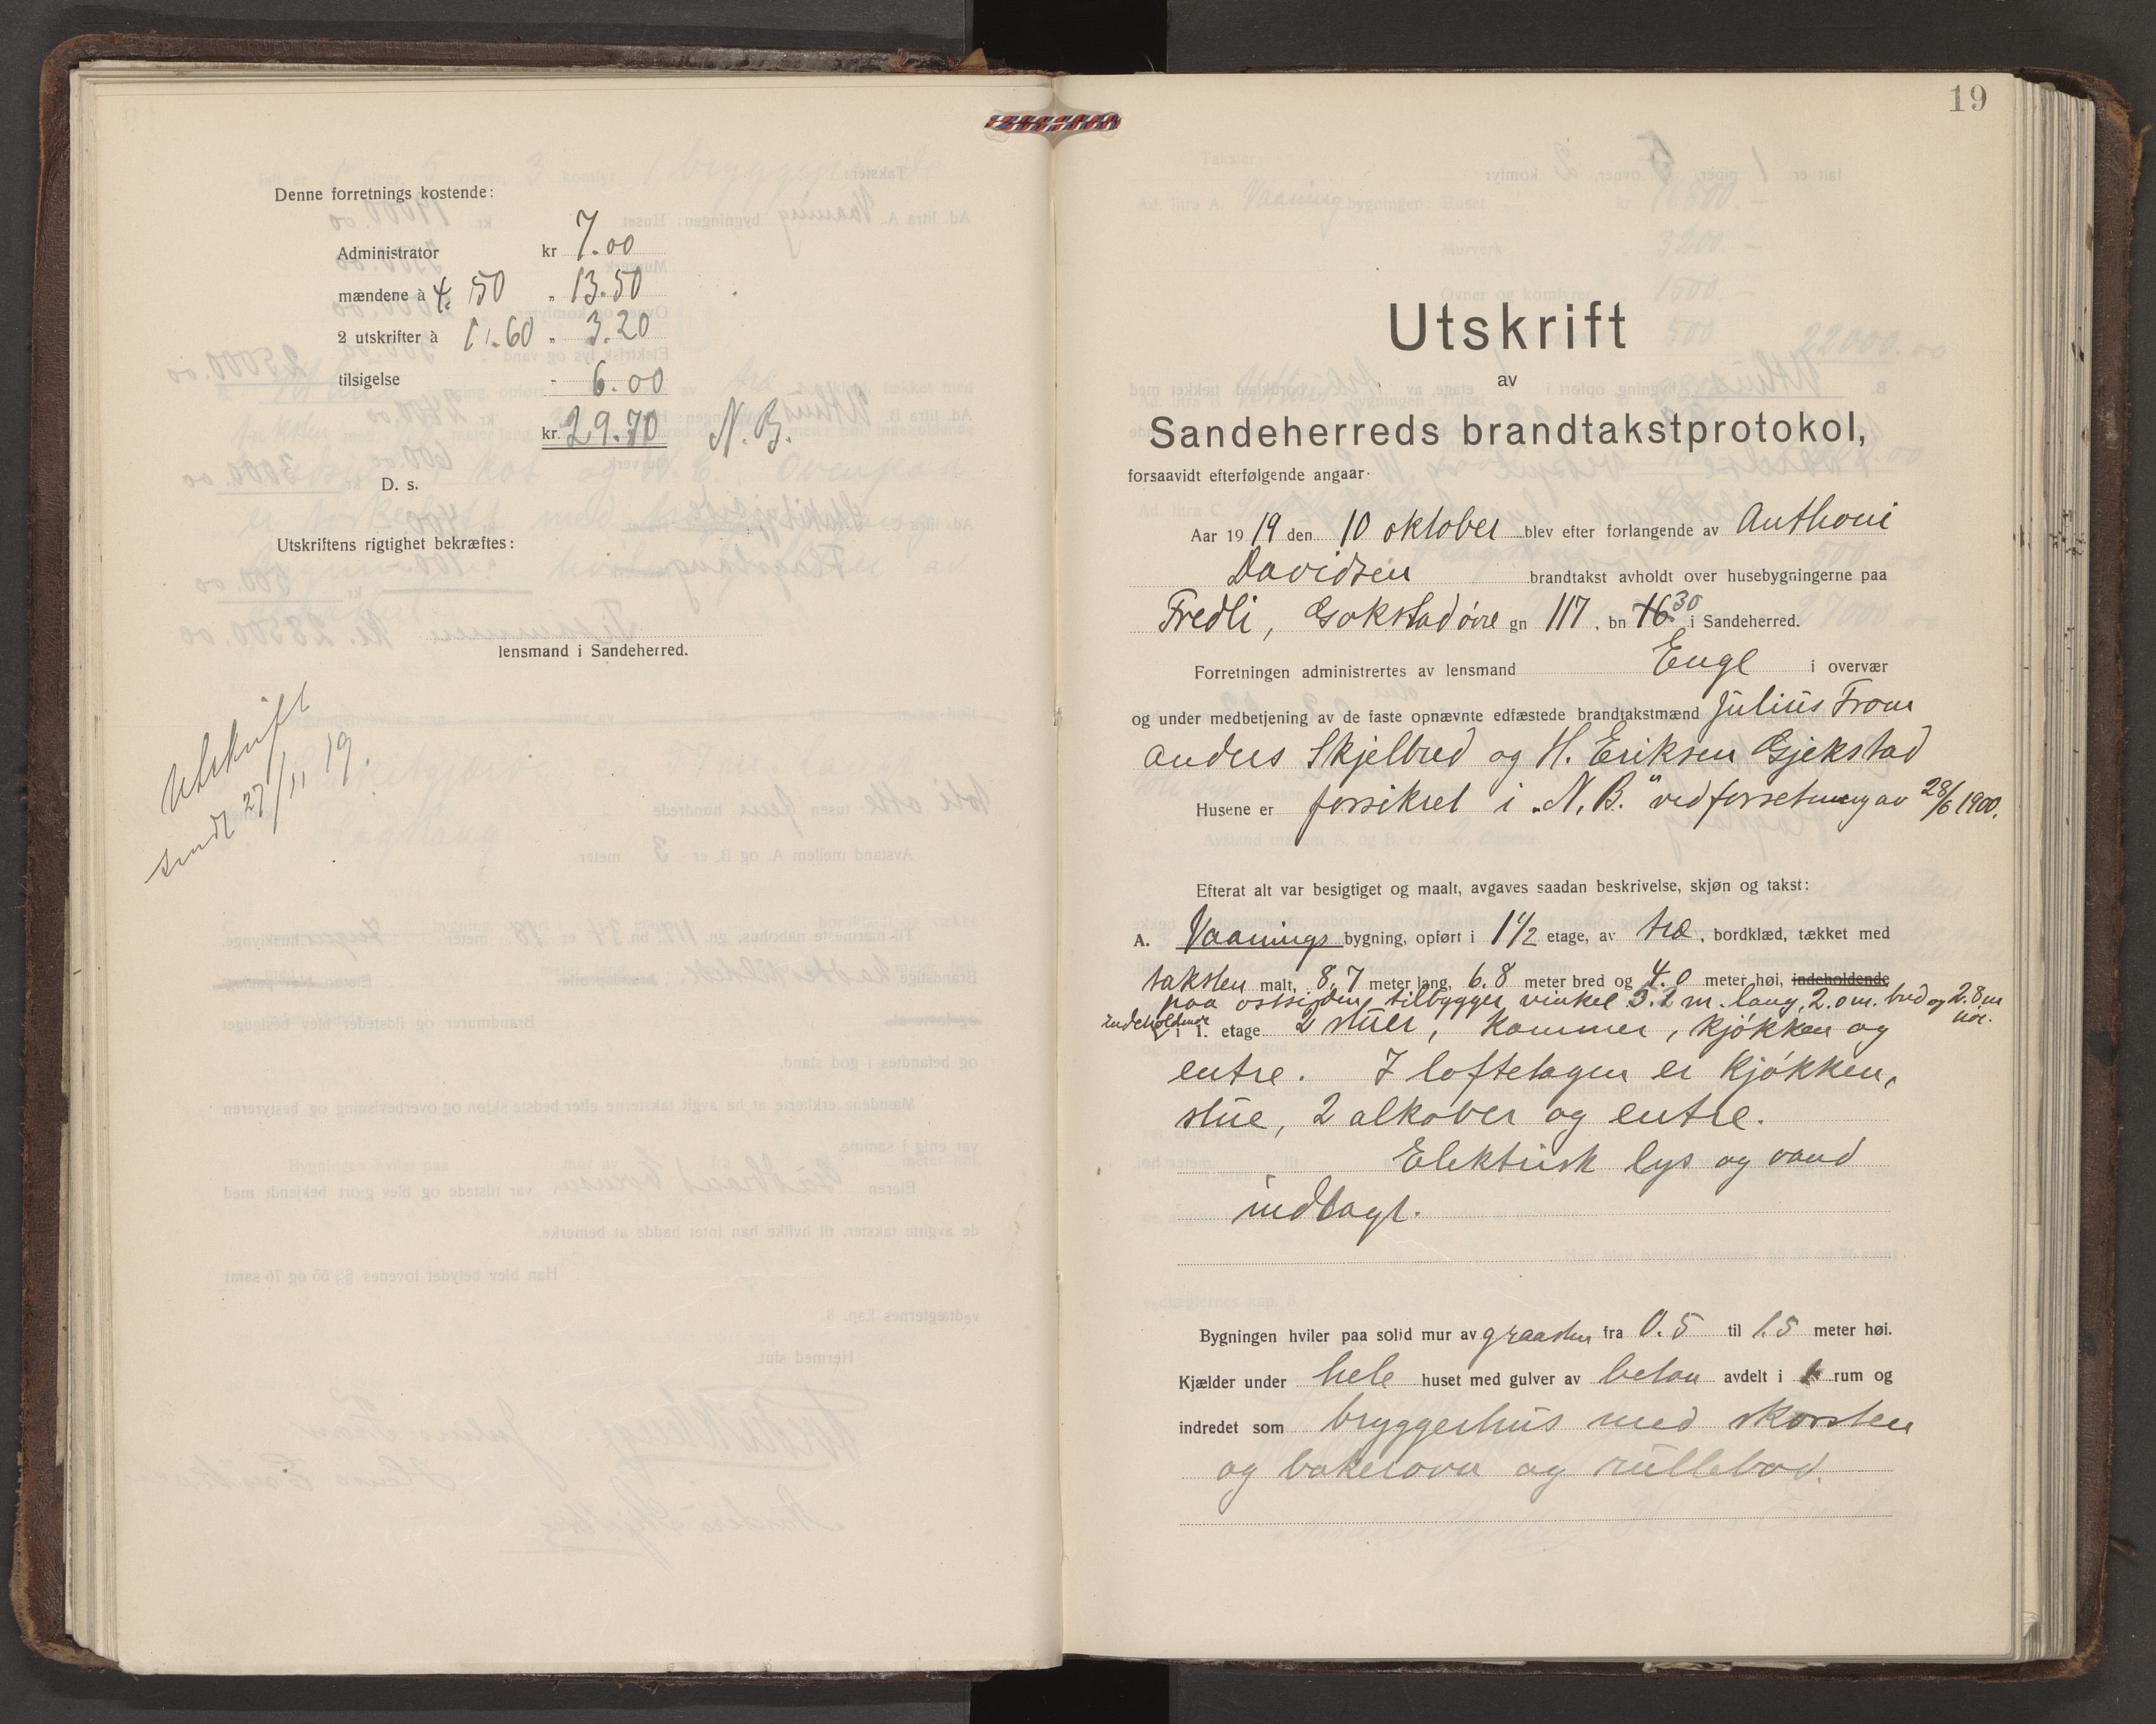 Denne forretnings kostende:
Administrator kr 7.00
mændene à 4.50 „ 13.50
2 utskrifter à 1.60 „ 3.20
tilsigelse - 6.00
kr. 29.70 N. B.
D. s.
Utskriftens rigtighet bekræftes:
lensmand i Sandeherred.
Utskrift
sendt 27/11 19.
19
Utskrift
av
Sandeherreds brandtakstprotokol,
forsaavidt efterfølgende angaar.
Aar 1919 den 10 oktober blev efter forlangende av Anthoni
Davidsen brandtakst avholdt over husebygningerne paa
Fredli, Gokstad øvre gn 117, bn 16. 30 i Sandeherred.
Forretningen administrertes av lensmand Enge i overvær
og under medbetjening av de faste opnævnte edfæstede brandtakstmænd Julius From
Anders Skjelbred og H. Eriksen Gjekstad
Husene er forsikret i „N. B." ved forretning av 28/6 1900.
Efterat alt var besigtiget og maalt, avgaves saadan beskrivelse, skjøn og takst:
A. Vaanings bygning, opført i 1½ etage, av træ, bordklæd, tækket med
taksten malt, 8.7 meter lang, 6.8 meter bred og 4.0 meter høi, indeholdende
paa østsiden tilbygget vinkel 3.2 m. lang, 2.0 m. bred og 2.8 m
høi.
indeholdende
i 1. etage 2 stuer, kammer, kjøkken og
entre. I loftetagen er kjøkken,
stue, 2 alkover og entre.
Elektrisk lys og vand
indlagt.
Bygningen hviler paa solid mur av graasten fra 0.5 til 1.5 meter høi.
Kjælder under hele huset med gulver av beton avdelt i rum og
indredet som bryggerhus med skorsten
og bakerovn og rullebod.